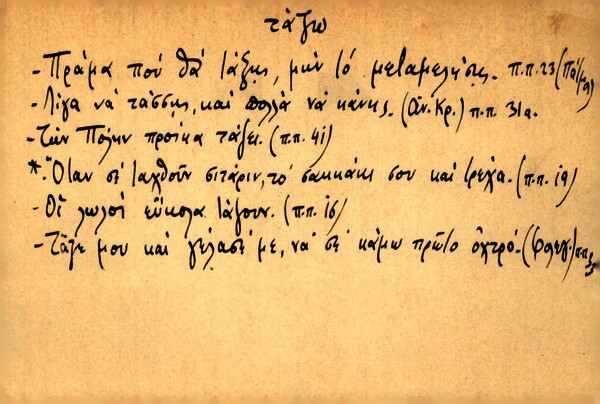 τάζω
- Πράμα πού θά τάξης, μήν τό μεταμελήσης. π.π. 23 (Πάτμος)
- Λίγα νά τάσσης, καί πολλά νά κάνης. (Ἀν. Κρ.) π.π. 31α.
- Τήν Πόλην προίκα τάζει. (π.π. 41)
*. Ὅταν σέ ταχθοῦν σιτάριν, τό σακκάκι σου καί τρέχα. (π.π. 19)
- Οἱ λωλοί εὔκολα τάζουν. (π.π. 16)
- Τάξε μου καί γέλασέ με, νά σέ κάμω πρῶτο ὀχτρό. (Φλεγ.) π.π.